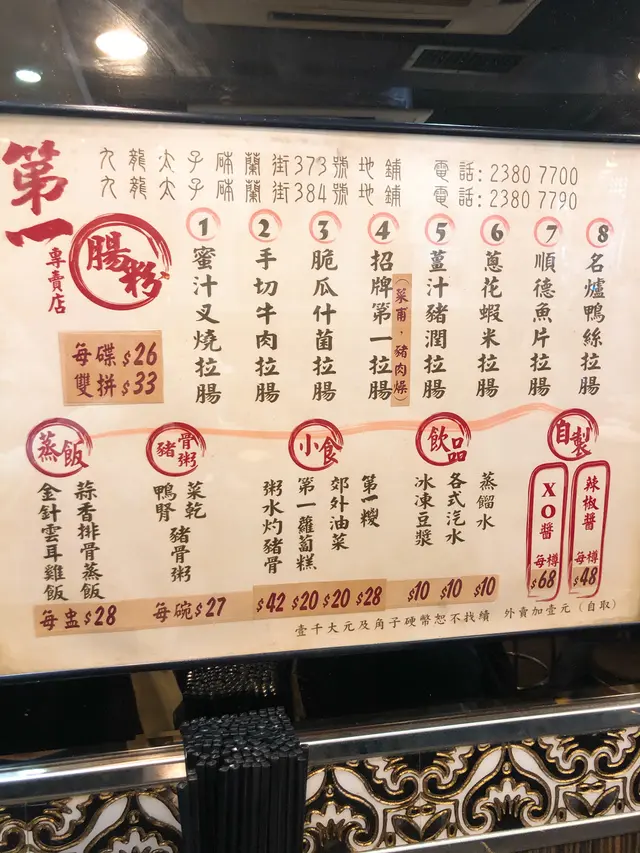 第一
腸粉
專賣店
九龍太子砵蘭街373號地鋪 電話: 2380 7700
九龍太子砵蘭街384號地鋪 電話: 2380 7790
1 蜜汁叉燒拉腸
2 手切牛肉拉腸
3 脆瓜什菌拉腸
4 招牌第一拉腸
(菜甫，豬肉燥)
5 薑汁豬潤拉腸
6 蔥花蝦米拉腸
7 順德魚片拉腸
8 名爐鴨絲拉腸
每碟 $26
雙拼 $33
蒸飯
金針雲耳雞飯
蒜香排骨蒸飯
每盅 $28
豬骨粥
鴨腎
菜乾
豬骨粥
每碗 $27
小食
粥水灼豬骨 $42
第一蘿蔔糕 $20
郊外油菜 $20
第一糉 $28
飲品
冰凍豆漿 $10
各式汽水 $10
蒸餾水 $10
自製
XO醬 每樽 $68
辣椒醬 每樽 $48
壹千大元及角子硬幣恕不找續 外賣加壹元 (自取)